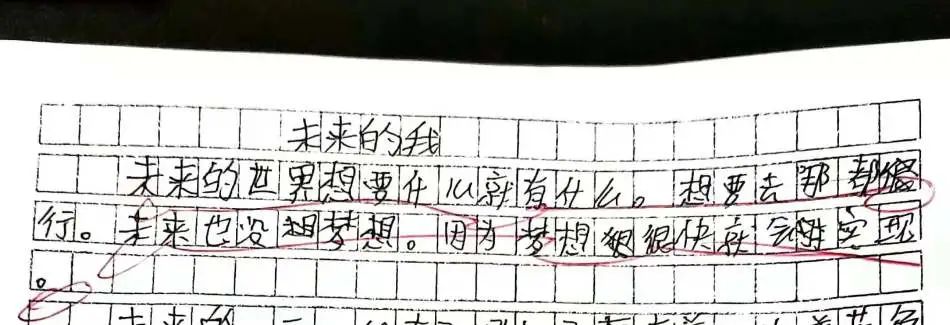 未来的我
未来的世界想要什么就有什么。想要去那都很
行。未来也没想梦想。因为梦想很很快就会实现
。
未来的